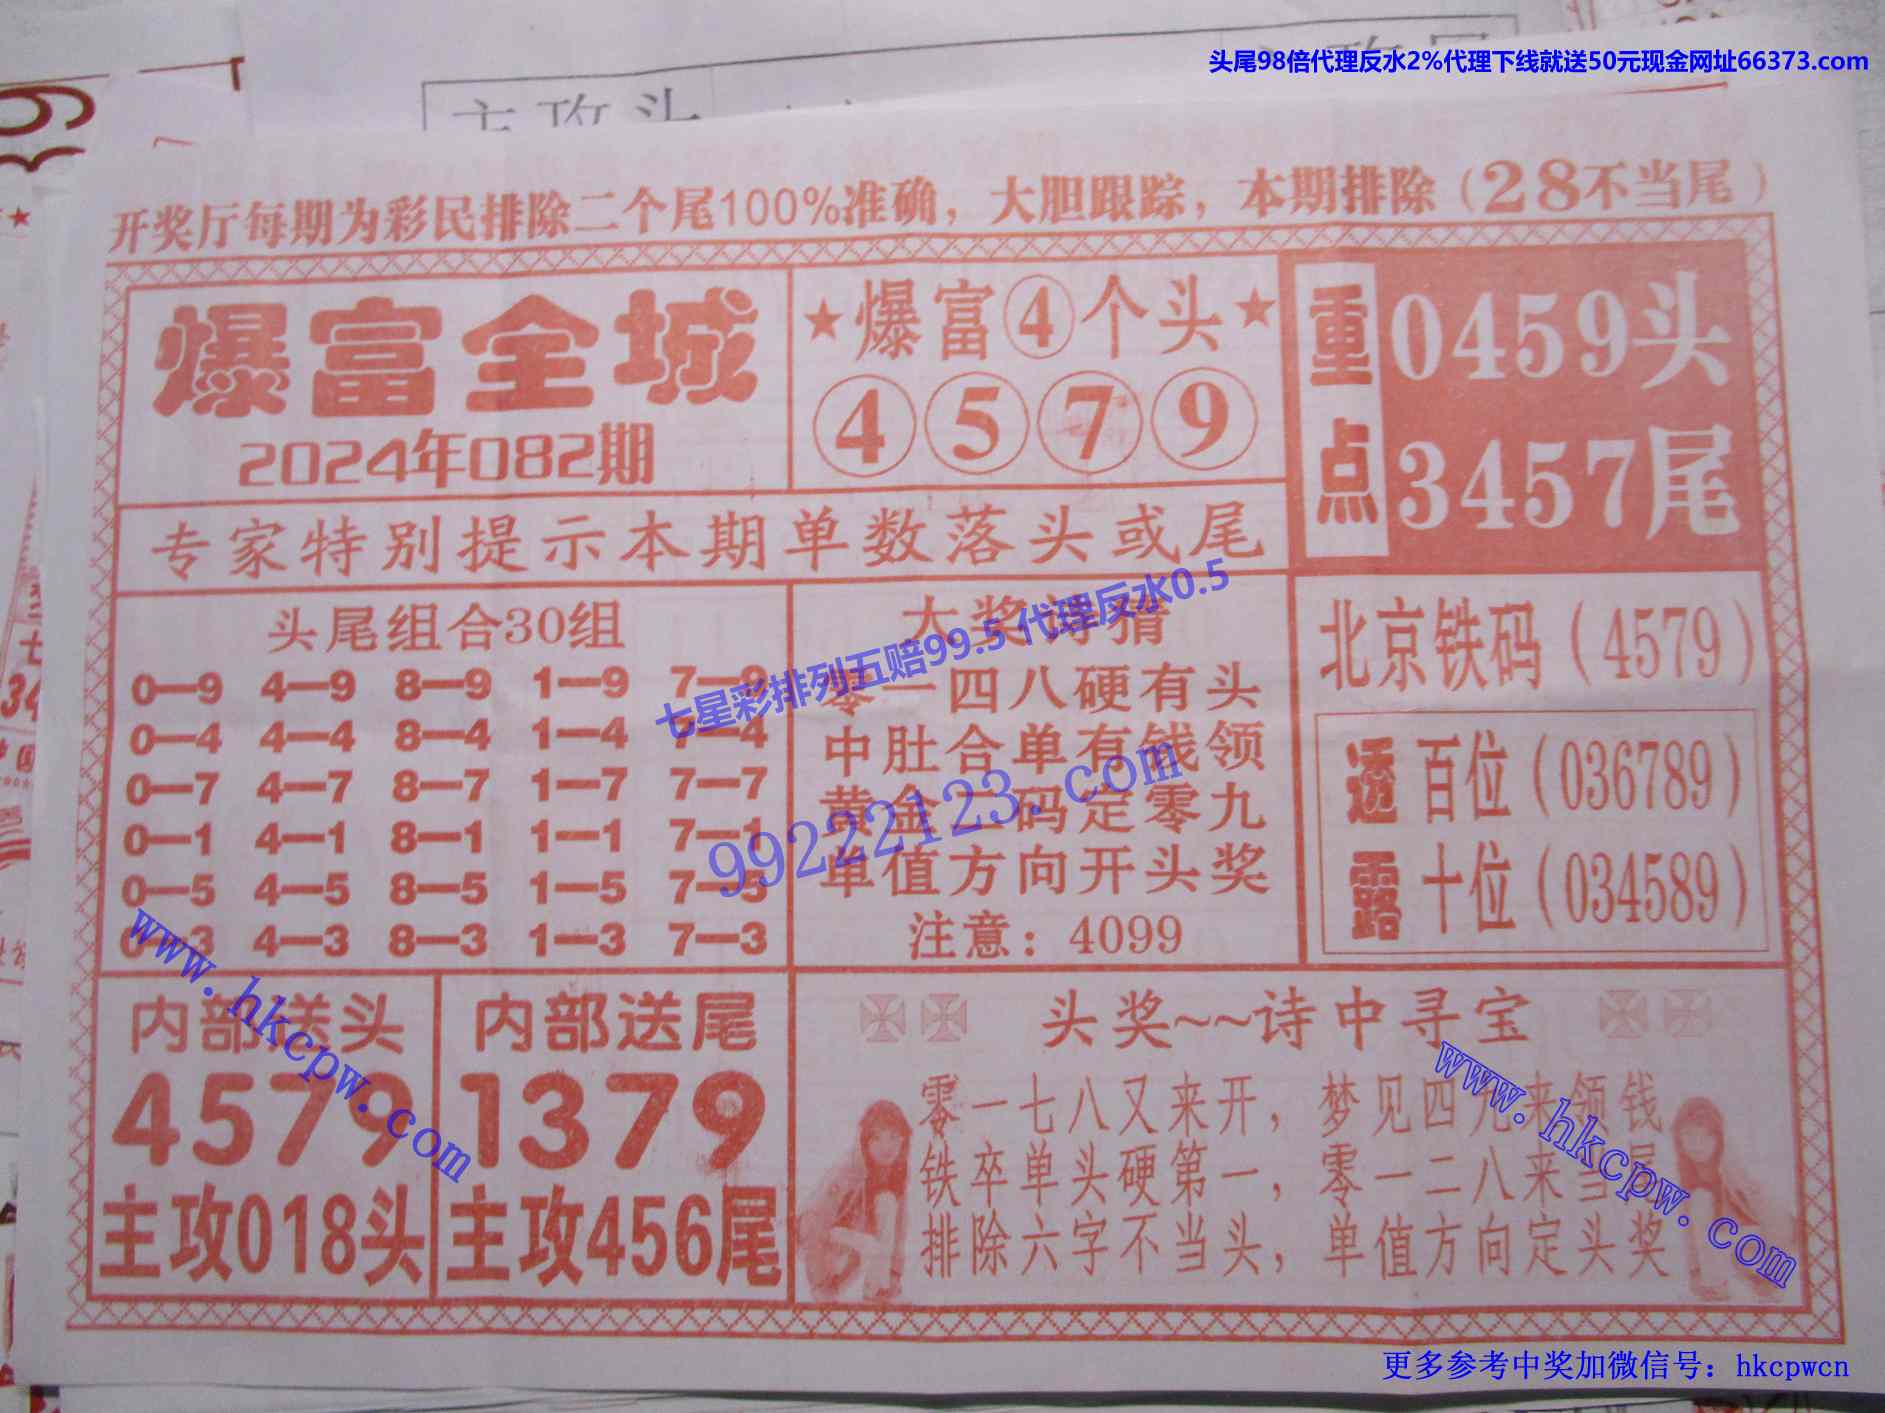 头尾98倍代理反水2%代理下线就送50元现金网址66373.com
主攻头
开奖厅每期为彩民排除二个尾100%准确，大胆跟踪，本期排除（28不当尾）
爆富全城
2024年082期
★爆富④个头★
④⑤⑦⑨
重点
0459头
3457尾
专家特别提示本期单数落头或尾
头尾组合30组
0—9 4—9 8—9 1—9 7—9
0—4 4—4 8—4 1—4 7—4
0—7 4—7 8—7 1—7 7—7
0—1 4—1 8—1 1—1 7—1
0—5 4—5 8—5 1—5 7—5
0—3 4—3 8—3 1—3 7—3
大奖诗猜
零一四八硬有头
中肚合单有钱领
黄金二码定零九
单值方向开头奖
注意：4099
北京铁码（4579）
透露
百位（036789）
十位（034589）
七星彩排列五赔99.5 代理反水0.5
99222123.com
内部送头
4579
主攻018头
内部送尾
1379
主攻456尾
头奖~~诗中寻宝
零一七八又来开，梦见四九来领钱
铁卒单头硬第一，零一二八来当尾
排除六字不当头，单值方向定头奖
www.hkcpw.com
www.hkcpw.com
更多参考中奖加微信号：hkcpwcn